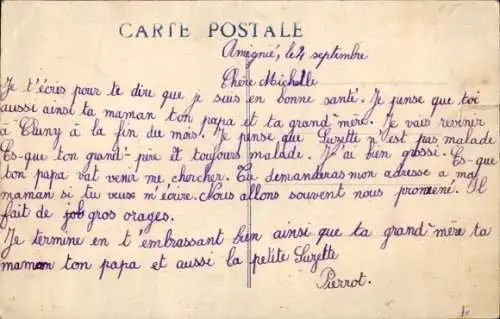 CARTE POSTALE
Amignié, le 4 septembre
Chère Michelle
Je t'écris pour te dire que je suis en bonne santé. Je pense que toi
aussi ainsi ta maman ton papa et ta grand'mère. Je vais revenir
à Cluny à la fin du mois. Je pense que Suzette n'est pas malade
Es-que ton grand-père et toujours malade. J'ai bien grossi. Es-que
ton papa vat venir me chercher. Tu demanderas mon adresse a ma
maman si tu veux m'écrire. Nous allons souvent nous promené. Il
fait de gros orages.
Je termine en t embrassant bien ainsi que ta grand'mère ta
maman ton papa et aussi la petite Suzette
Pierrot.